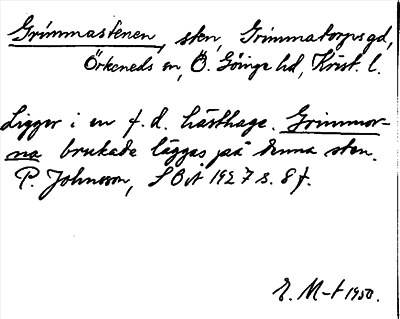 Grimmastenen, sten, Grimmatorpsgd,
Örkeneds sn, Ö. Göinge hd, Krist. l.
Ligger i en f.d. hästhage. Grimmor-
na brukade läggas på denna sten.
P. Johnsson, SBÅ 1927 s. 8 f.
E. M-t 1950.